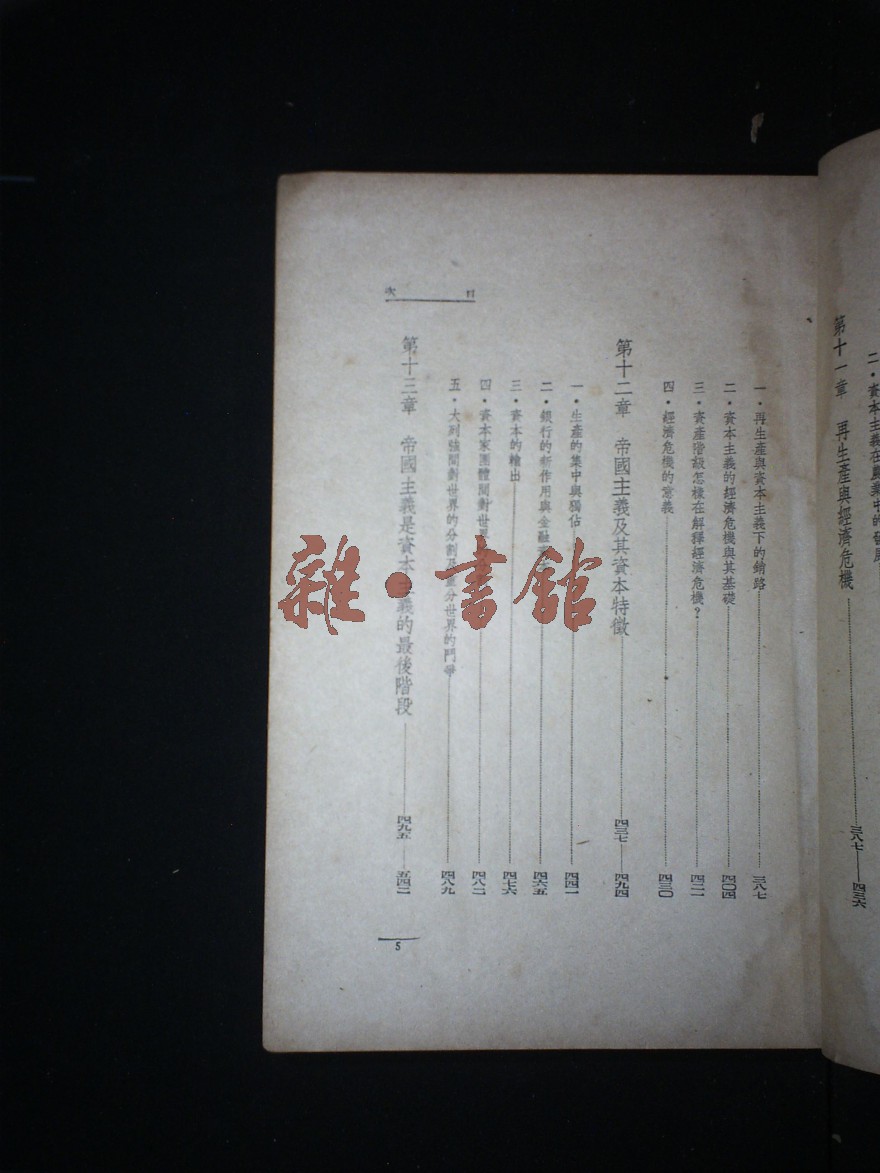 二·資本主義在農業中的發展
第十一章 再生產與經濟危機 三八七——四三六
一·再生產與資本主義下的銷路 三八七
二·資本主義的經濟危機與其基礎 四〇四
三·資產階級怎樣在解釋經濟危機？ 四二一
四·經濟危機的意義 四三〇
第十二章 帝國主義及其資本特徵 四三七——四九四
一·生產的集中與獨佔 四四一
二·銀行的新作用與金融資本 四六五
三·資本的輸出 四七六
四·資本家團體間對世界 四八二
五·大列強間對世界的分割及重分世界的鬥爭 四八九
第十三章 帝國主義是資本主義的最後階段 四九五——五四二
目次
5
雜·書館